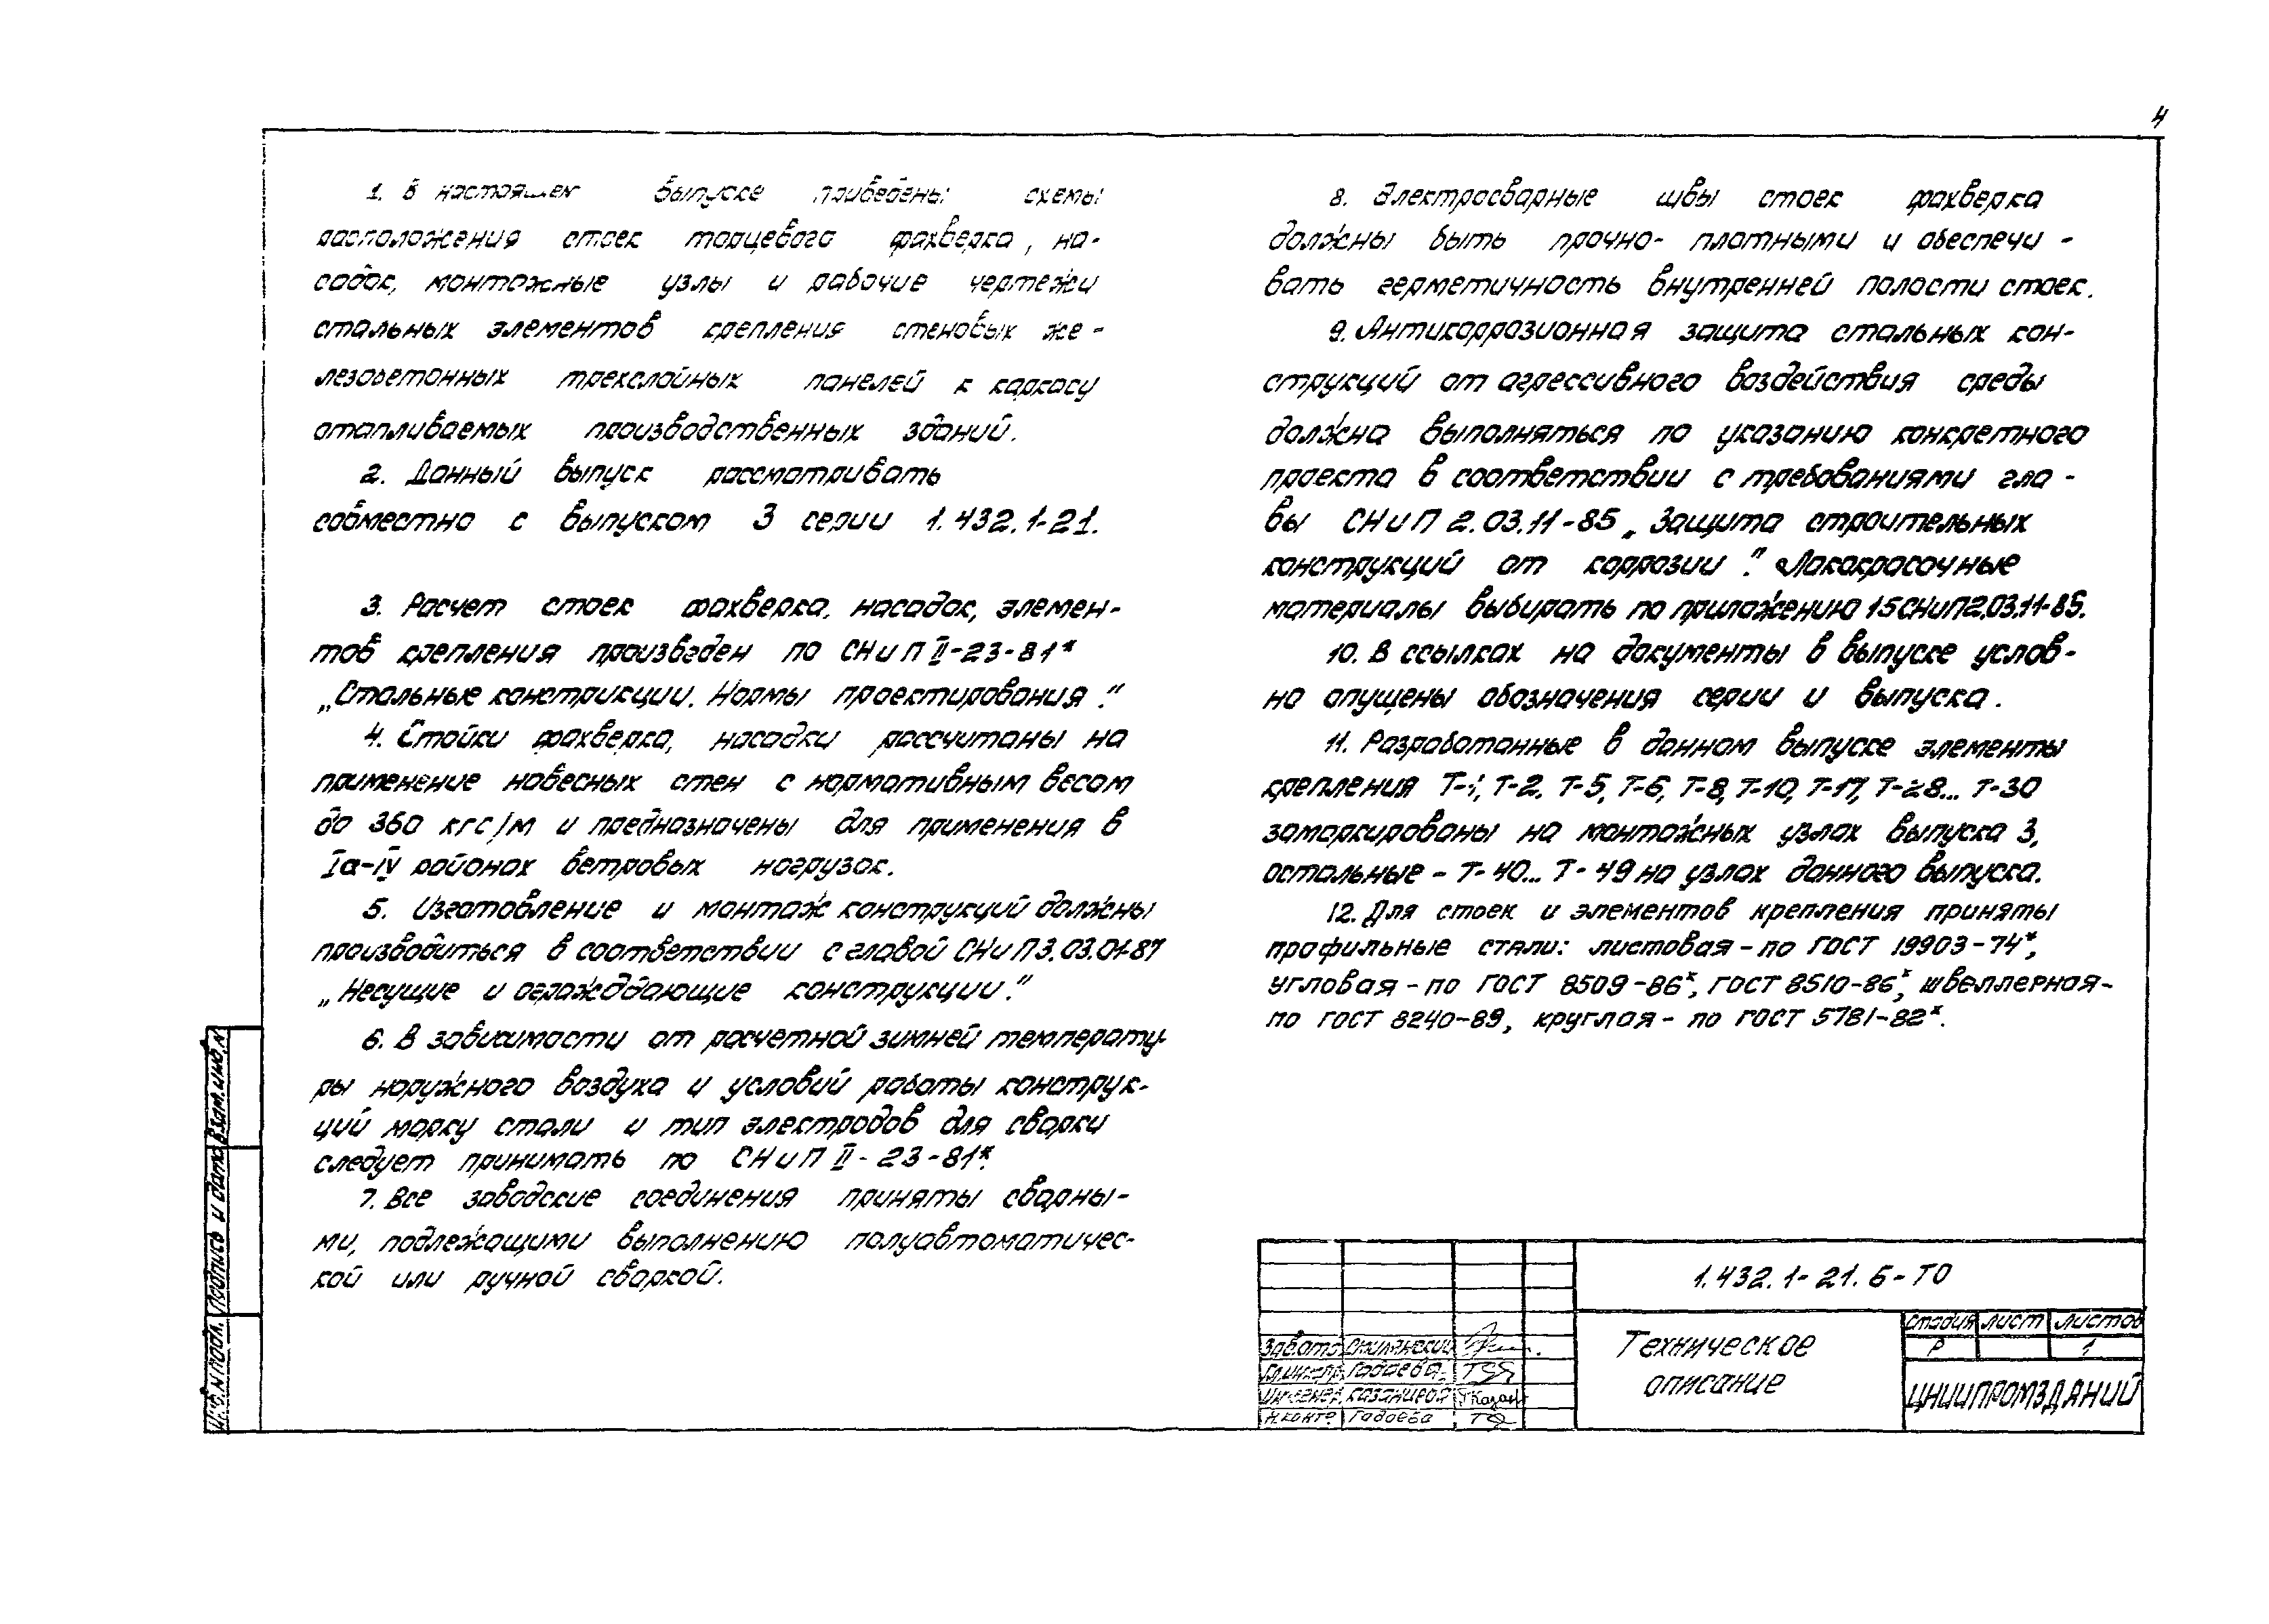 4
1. В настоящем выпуске приведены: схемы
расположения стоек торцевого фахверка, на-
садок, монтажные узлы и рабочие чертежи
стальных элементов крепления стеновых же-
лезобетонных трехслойных панелей к каркасу
отапливаемых производственных зданий.
2. Данный выпуск рассматривать
совместно с выпуском 3 серии 1.432.1-21.
3. Расчет стоек фахверка, насадок, элемен-
тов крепления произведен по СНиП II-23-81*
„Стальные конструкции. Нормы проектирования".
4. Стойки фахверка, насадки рассчитаны на
применение навесных стен с нормативным весом
до 360 кгс/м и предназначены для применения в
Iа-IV районах ветровых нагрузок.
5. Изготовление и монтаж конструкций должны
производиться в соответствии с главой СНиП 3.03.01-87
„Несущие и ограждающие конструкции."
6. В зависимости от расчетной зимней температу-
ры наружного воздуха и условий работы конструк-
ций марку стали и тип электродов для сварки
следует принимать по СНиП II-23-81*.
7. Все заводские соединения приняты сварны-
ми, подлежащими выполнению полуавтоматичес-
кой или ручной сваркой.
8. Электросварные швы стоек фахверка
должны быть прочно-плотными и обеспечи-
вать герметичность внутренней полости стоек.
9. Антикоррозионная защита стальных кон-
струкций от агрессивного воздействия среды
должна выполняться по указанию конкретного
проекта в соответствии с требованиями гла-
вы СНиП 2.03.11-85 „Защита строительных
конструкций от коррозии". Лакокрасочные
материалы выбирать по приложению 15 СНиП 2.03.11-85.
10. В ссылках на документы в выпуске услов-
но опущены обозначения серии и выпуска.
11. Разработанные в данном выпуске элементы
крепления Т-1, Т-2, Т-5, Т-6, Т-8, Т-10, Т-17, Т-28... Т-30
замаркированы на монтажных узлах выпуска 3,
остальные - Т-40... Т-49 на узлах данного выпуска.
12. Для стоек и элементов крепления приняты
профильные стали: листовая - по ГОСТ 19903-74*,
угловая - по ГОСТ 8509-86*, ГОСТ 8510-86*, швеллерная-
по ГОСТ 8240-89, круглая - по ГОСТ 5781-82*.
Взам. инв. N
Подпись и дата
Инв. N подл.
1.432.1-21.6-ТО
Техническое
описание
Стадия Лист Листов
Р 1
ЦНИИПРОМЗДАНИЙ
Зав.отд.
Гл.инж.пр. Гадаева
Инженер Казанцева
Н.контр. Гадаева